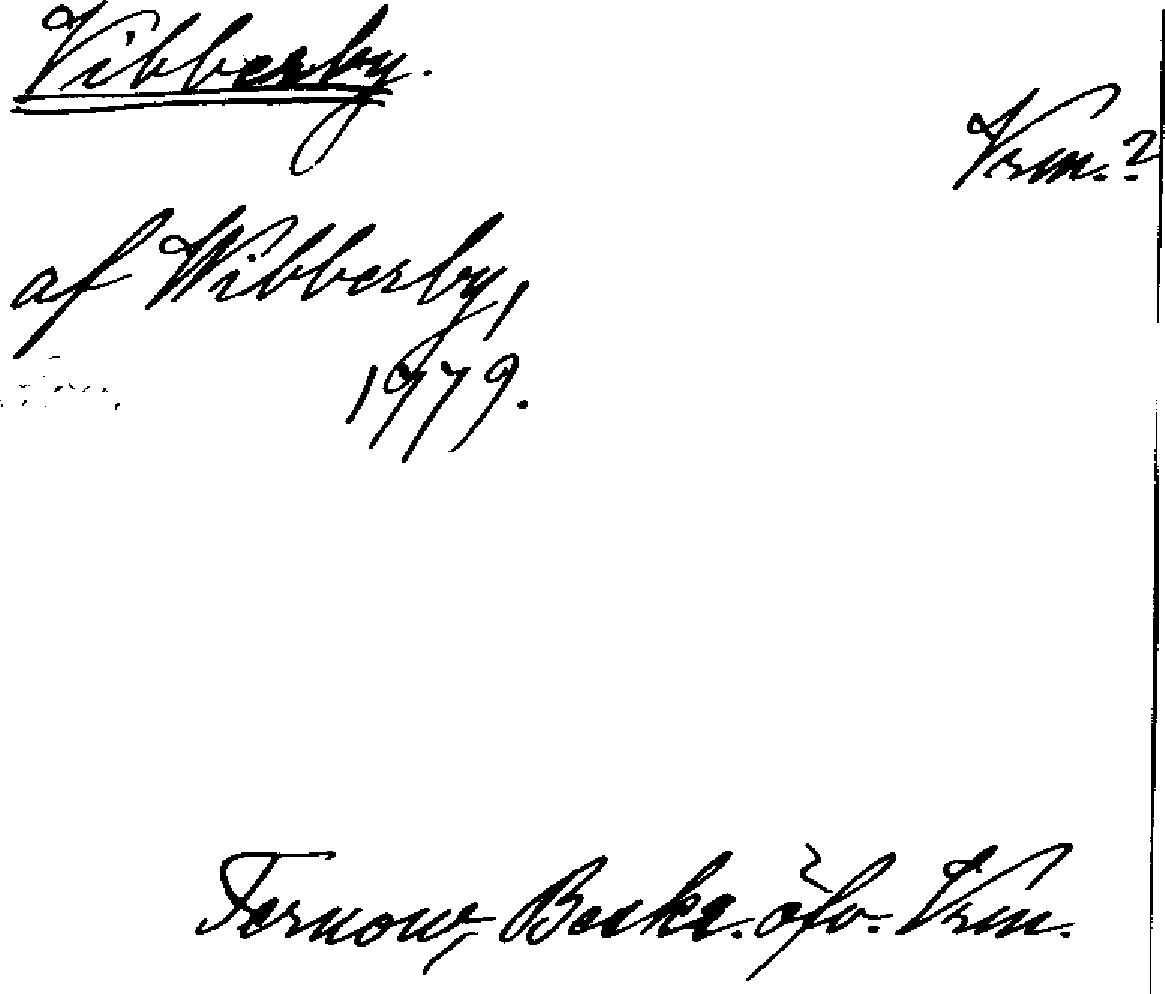 Vibberby.
Vrm.?
af Wibberby,
1979.
Fernow, Beskr. öfv. Vrm.